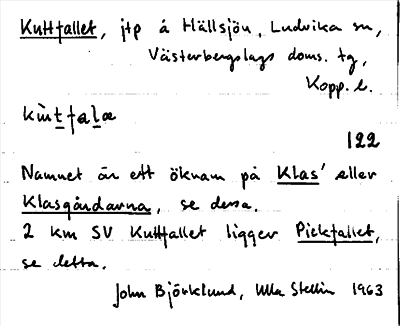 Kuttfallet, jtp å Hällsjön, Ludvika sn,
Västerbergslags doms. tg,
Kopp. l.
122
Namnet är ett öknamn på Klas' eller
Klasgårdarna, se dessa.
2 km SV Kuttfallet ligger Pickfallet,
se detta.
John Björklund, Ulla Stellin 1963